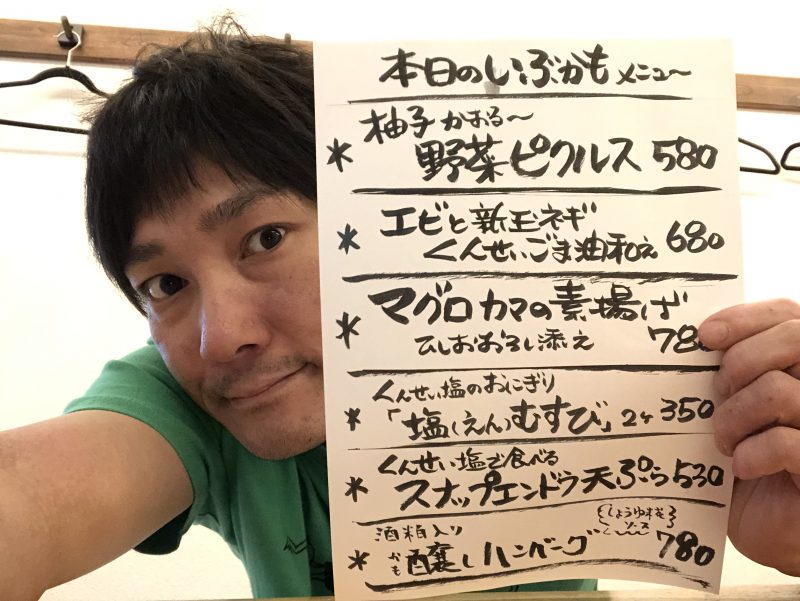 本日のいぶかもメニュー
* 柚子かおる〜
野菜ピクルス 580
* エビと新玉ネギ
くんせいごま油和え 680
* マグロカマの素揚げ
ひしおおろし添え 780
くんせい塩のおにぎり
* 「塩(えん)むすび」2ヶ 350
くんせい塩で食べる
* スナップエンドウ天ぷら 530
酒粕入り しょうゆ糀ソース
* かも醸しハンバーグ 780